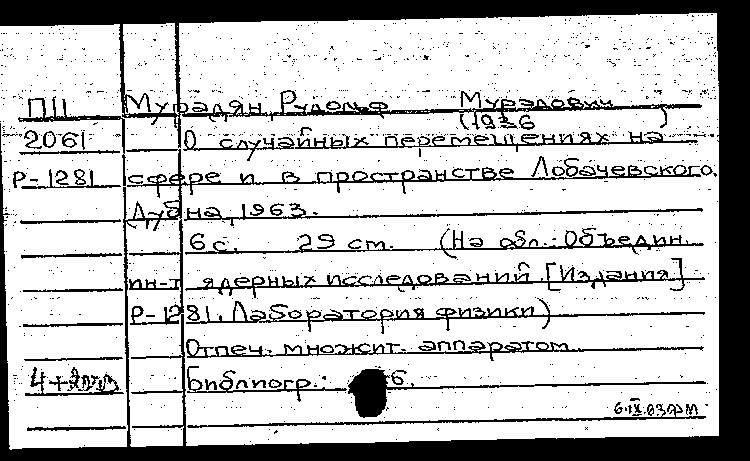 П11 Мурадян, Рудольф Мурадович
(1936 )
2061 О случайных перемещениях на
Р-1281 сфере и в пространстве Лобачевского.
Дубна, 1963.
6 с. 29 см. (На обл.: Объедин.
ин-т ядерных исследований. [Издания]
Р-1281. Лаборатория физики)
Отпеч. множит. аппаратом
Библиогр.: 6.